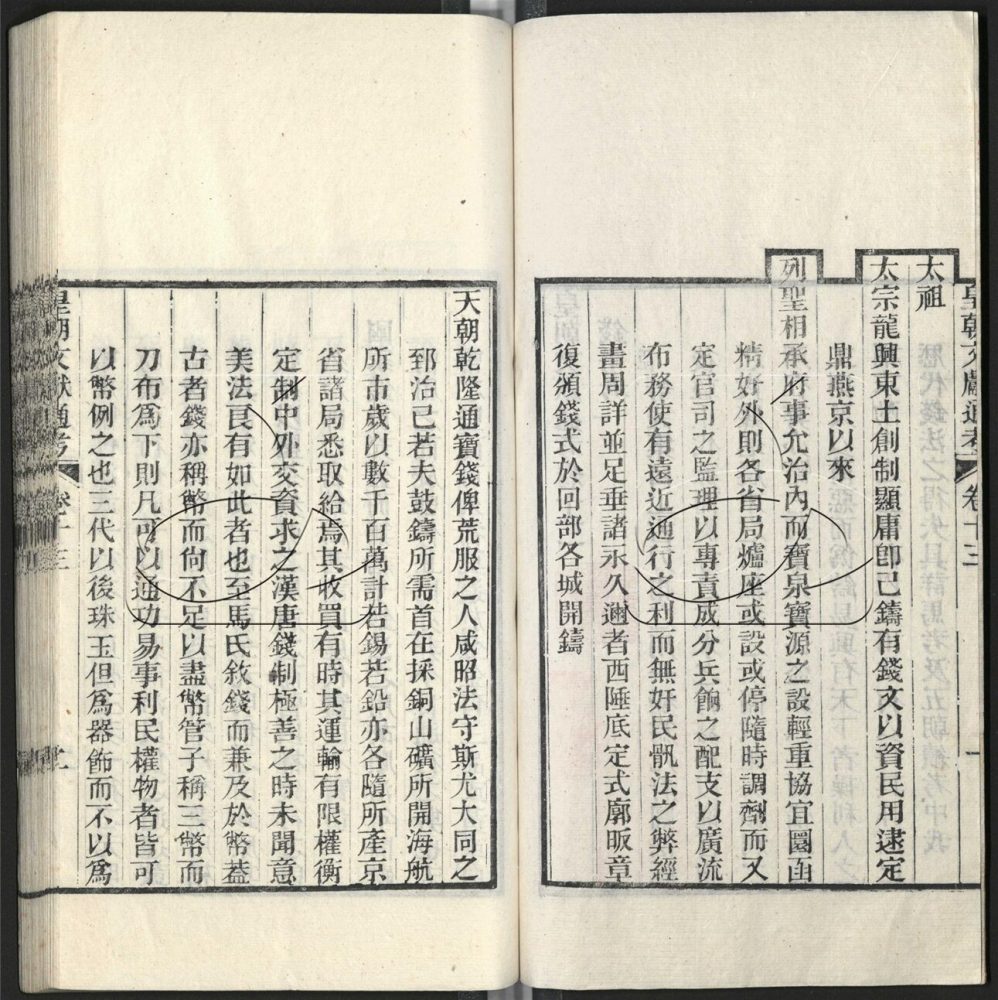 皇朝文獻通考 卷十三 一
太祖
太宗龍興東土創制顯庸即已鑄有錢文以資民用逮定
鼎燕京以來
列聖相承府事允治內而寶泉寶源之設輕重協宜圜函
精好外則各省局爐座或設或停隨時調劑而又
定官司之監理以專責成分兵餉之配支以廣流
布務使有遠近通行之利而無奸民骫法之弊經
畫周詳並足垂諸永久邇者西陲底定式廓昄章
復頒錢式於回部各城開鑄
天朝乾隆通寶錢俾荒服之人咸昭法守斯尤大同之
郅治已若夫鼓鑄所需首在採銅山礦所開海航
所市歲以數千百萬計若錫若鉛亦各隨所產京
省諸局悉取給焉其收買有時其運輸有限權衡
定制中外交資求之漢唐錢制極善之時未聞意
美法良有如此者也至馬氏敘錢而兼及於幣蓋
古者錢亦稱幣而尙不足以盡幣管子稱三幣而
刀布爲下則凡可以通功易事利民權物者皆可
以幣例之也三代以後珠玉但爲器飾而不以爲
皇朝文獻通考 卷十三